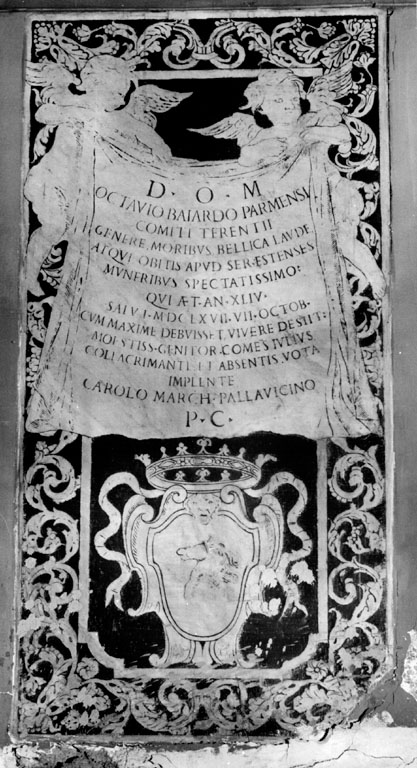 D·O·M
OCTAVIO BAIARDO PARMENSI
COMITI TERENTII
GENERE, MORIBVS BELLICA LAVDE
ATQVE OBITIS APVD SER·ESTENSES
MVNERIBVS SPECTATISSIMO:
QVI ÆT·AN·XLIV·
SALVT·MDCLXVII·VII·OCTOB·
CVM MAXIME DEBVISSET, VIVERE DESIIT:
MOESTISS·GENITOR·COMES IVLIVS
COLLACRIMANTE, ET ABSENTIS VOTA
IMPLENTE
CAROLO MARCH·PALLAVICINO
P·C·